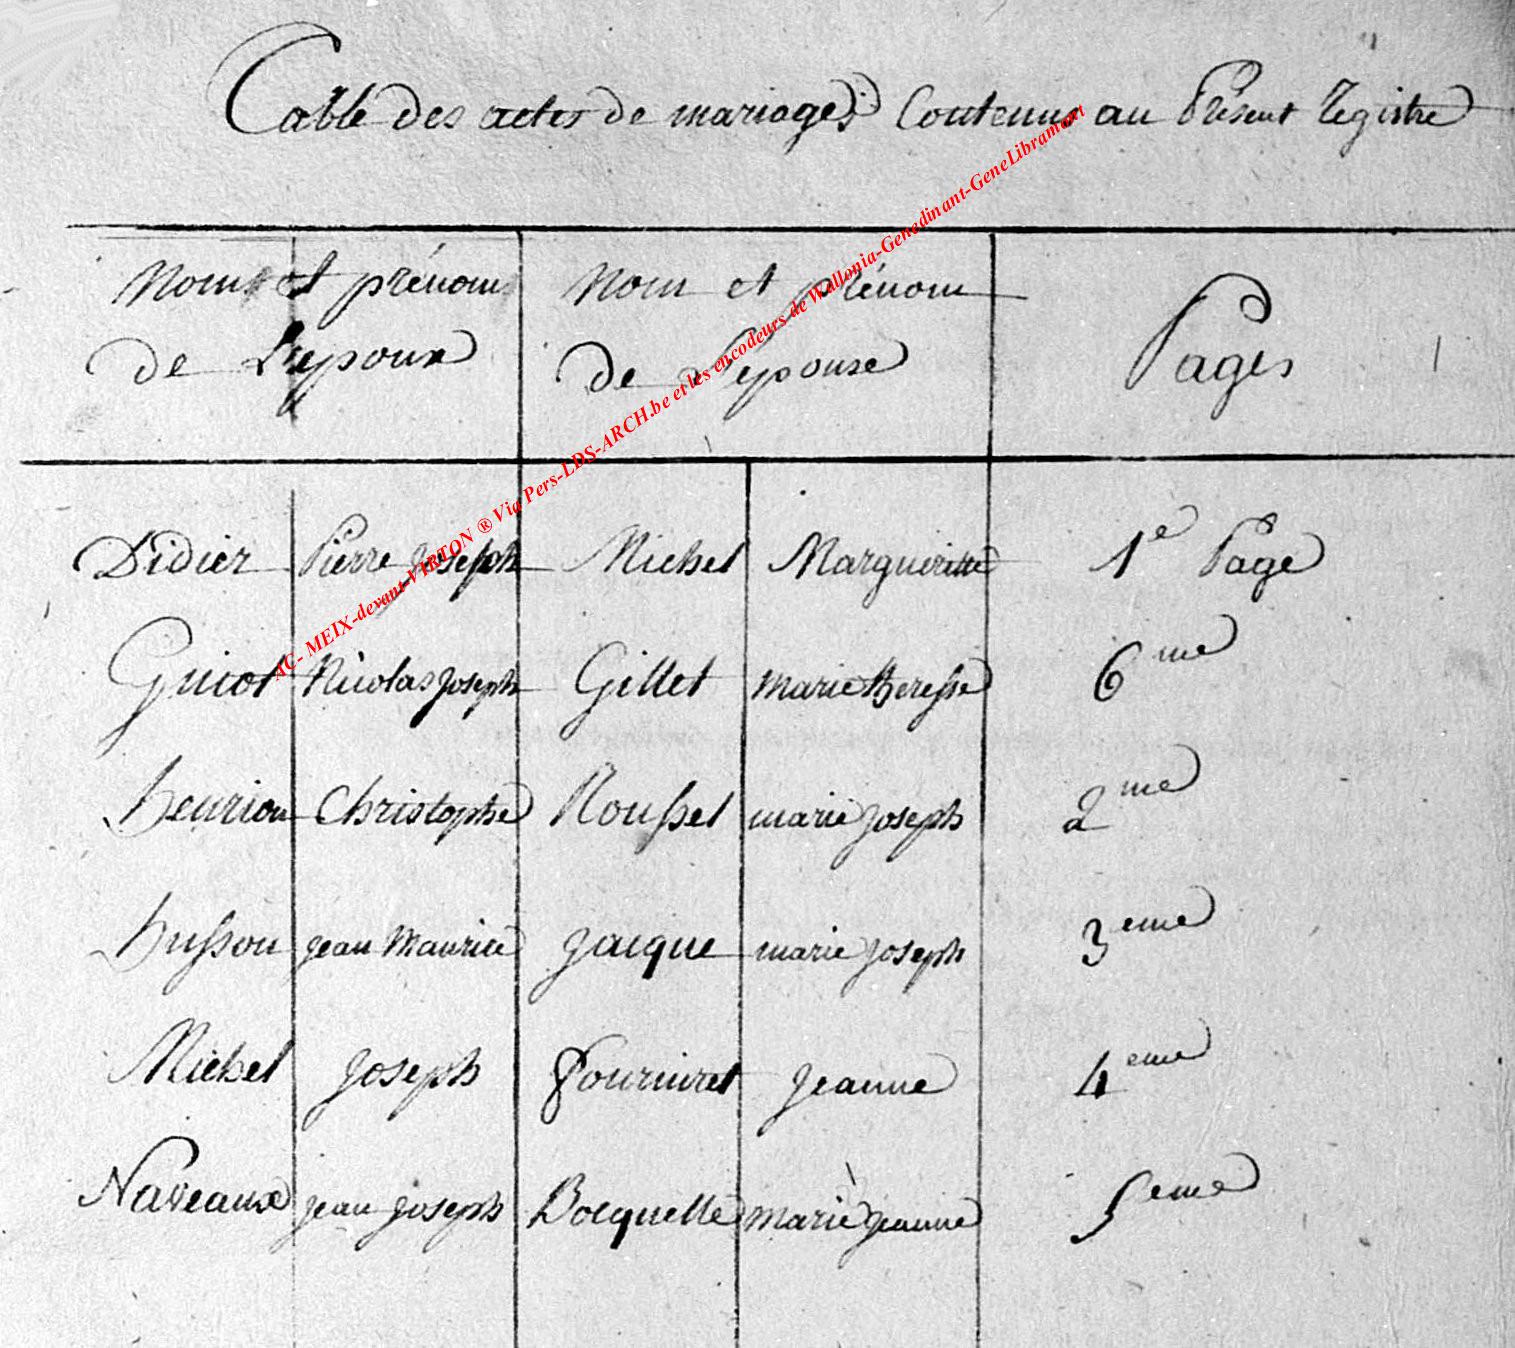 Table des actes de mariages Contenus au Présent Registre
Nom et prénom Nom et prénom Pages
de L'epoux de L'epouse
Didier Pierre Joseph Michel Margueritte 1e Page
Guiot Nicolas Joseph Gillet marie theresse 6me
henrion Christophe Rousset marie Joseph 2me
husson jean Maurice Jacque marie Joseph 3eme
Michel Joseph Fourniret Jeanne 4eme
Naveaux jean Joseph Bocquelle marie jeanne 5eme
AC- MEIX-devant-VIRTON ® Via Pers-LDS-ARCH.be et les encodeurs de Wallonia-Genedinant-GeneLibramont